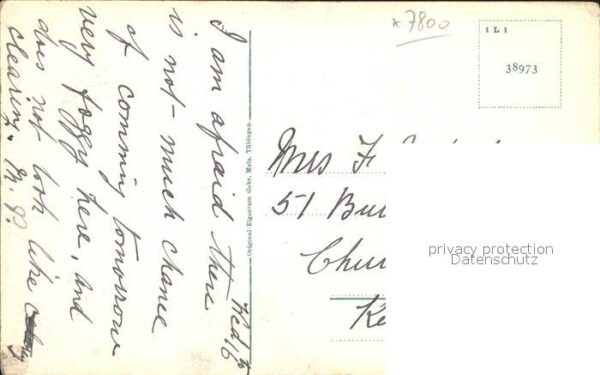 I am afraid there
is not much chance
of comming tomorrow
very foggy here, and
dus not look like
clearing. M. P.
Wed
* 7800
1 L 1
38973
Original Eigentum Gebr. Metz, Tübingen.
Mrs F.
51
privacy protection
Datenschutz